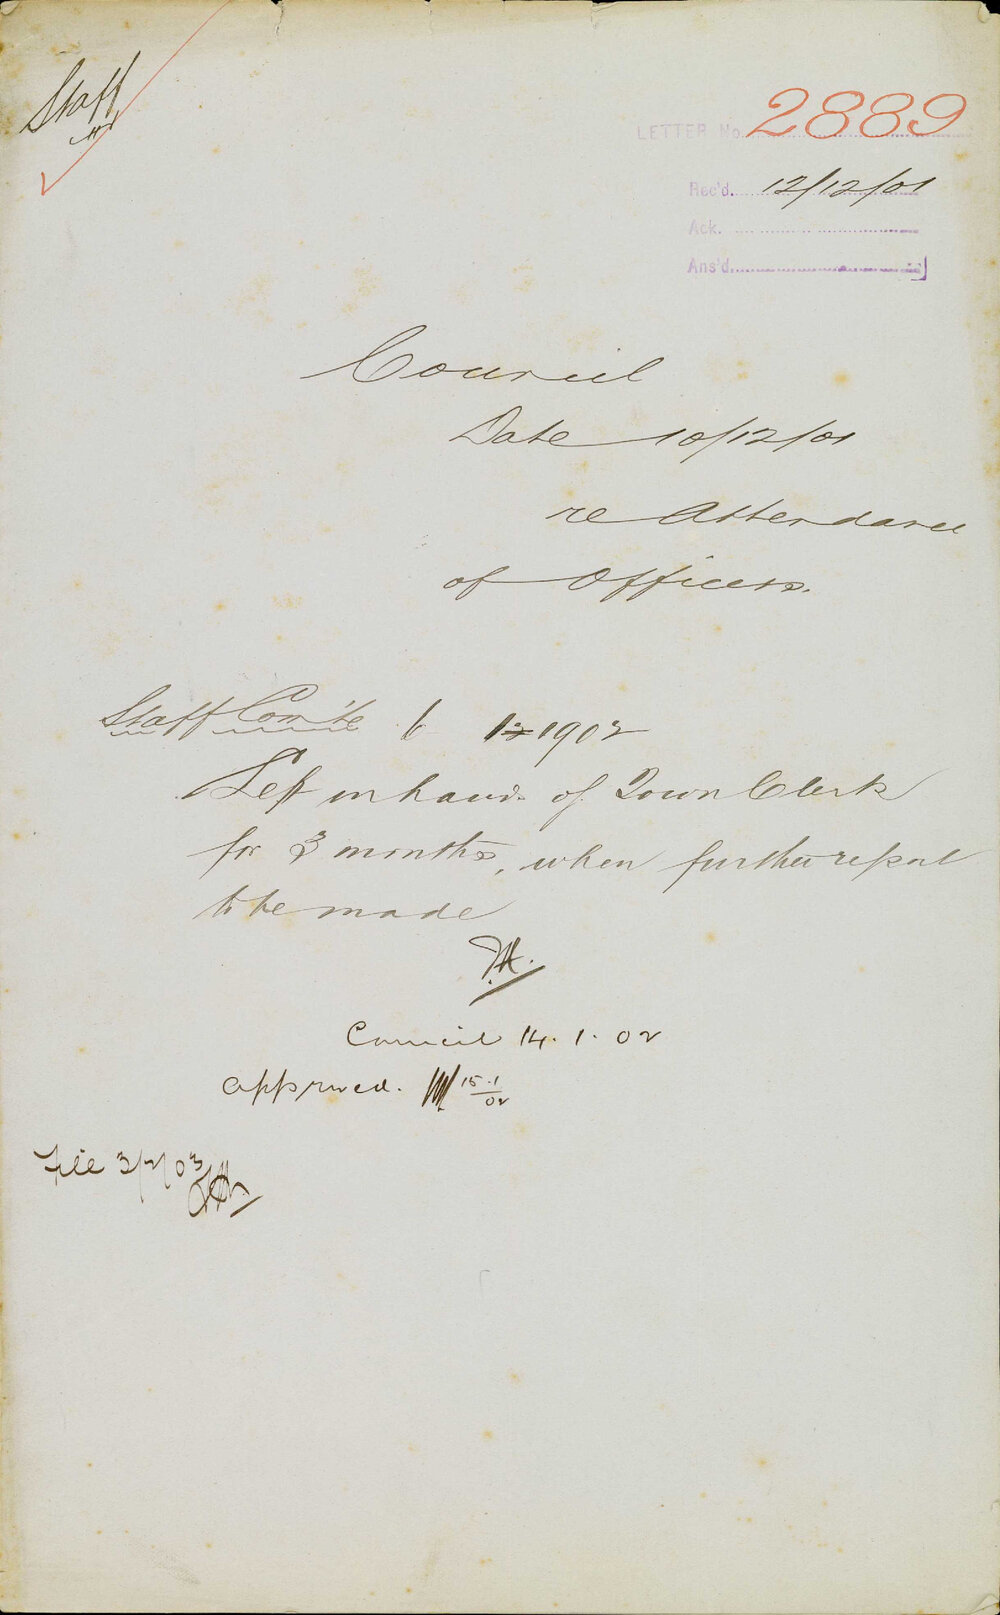 Staff
LETTER No. 2889
Rec'd. 12/12/01
Ack.
Ans'd.
Council
Date 10/12/01
re Attendance
of Officers.
Staff Com'te 6 1 1902
Left in hands of Town Clerk
for 3 months, when further report
to be made
Council 14. 1. 02
approved. 15.1/02
File 3/2/03